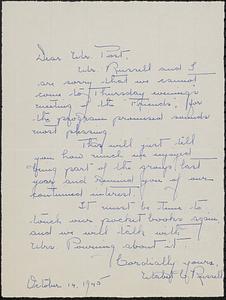 Dear Mr. Post,
Mr. Russell and I
are sorry that we cannot
come to Thursday evening's
meeting of the "Friends", for
the program promised sounds
most pleasing.
This will just tell
you how much we enjoyed
being part of the group last
year and you of our
continued interest.
It must be time to
touch our pocket books again
and we will talk with
Mrs. about it.
Cordially yours,
Russell
October 14, 1945